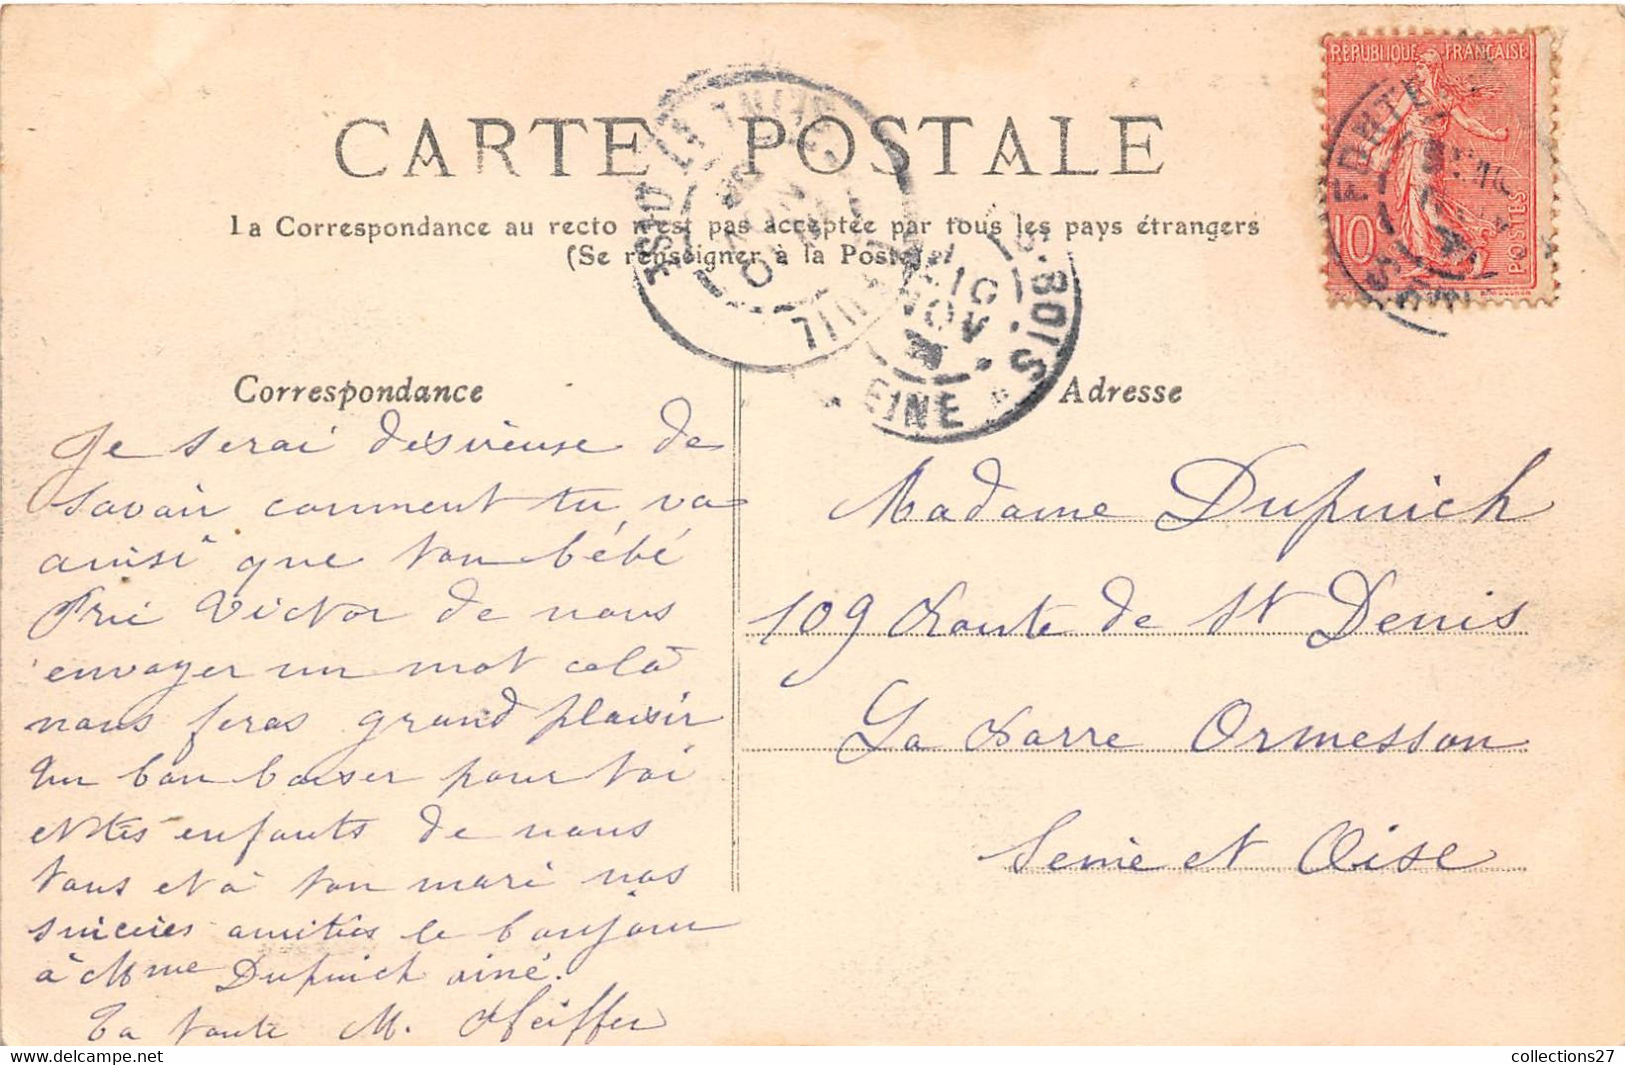 CARTE POSTALE
La Correspondance au recto n'est pas acceptée par tous les pays étrangers
(Se renseigner à la Poste)
RÉPUBLIQUE FRANÇAISE
10
POSTES
S. BOIS
10
NOV
EINE
Correspondance
Je serai désireuse de
savoir comment tu va
ainsi que ton bébé
Prie Victor de nous
envoyer un mot cela
nous feras grand plaisir
Un bon baiser pour toi
et tes enfants de nous
tous et à ton mari nos
sincères amitiés le bonjour
à Mme Dupuich ainé.
Ta tante M. Pfeiffer
Adresse
Madame Dupuich
109 Route de St Denis
La Barre Ormesson
Seine et Oise
collections27